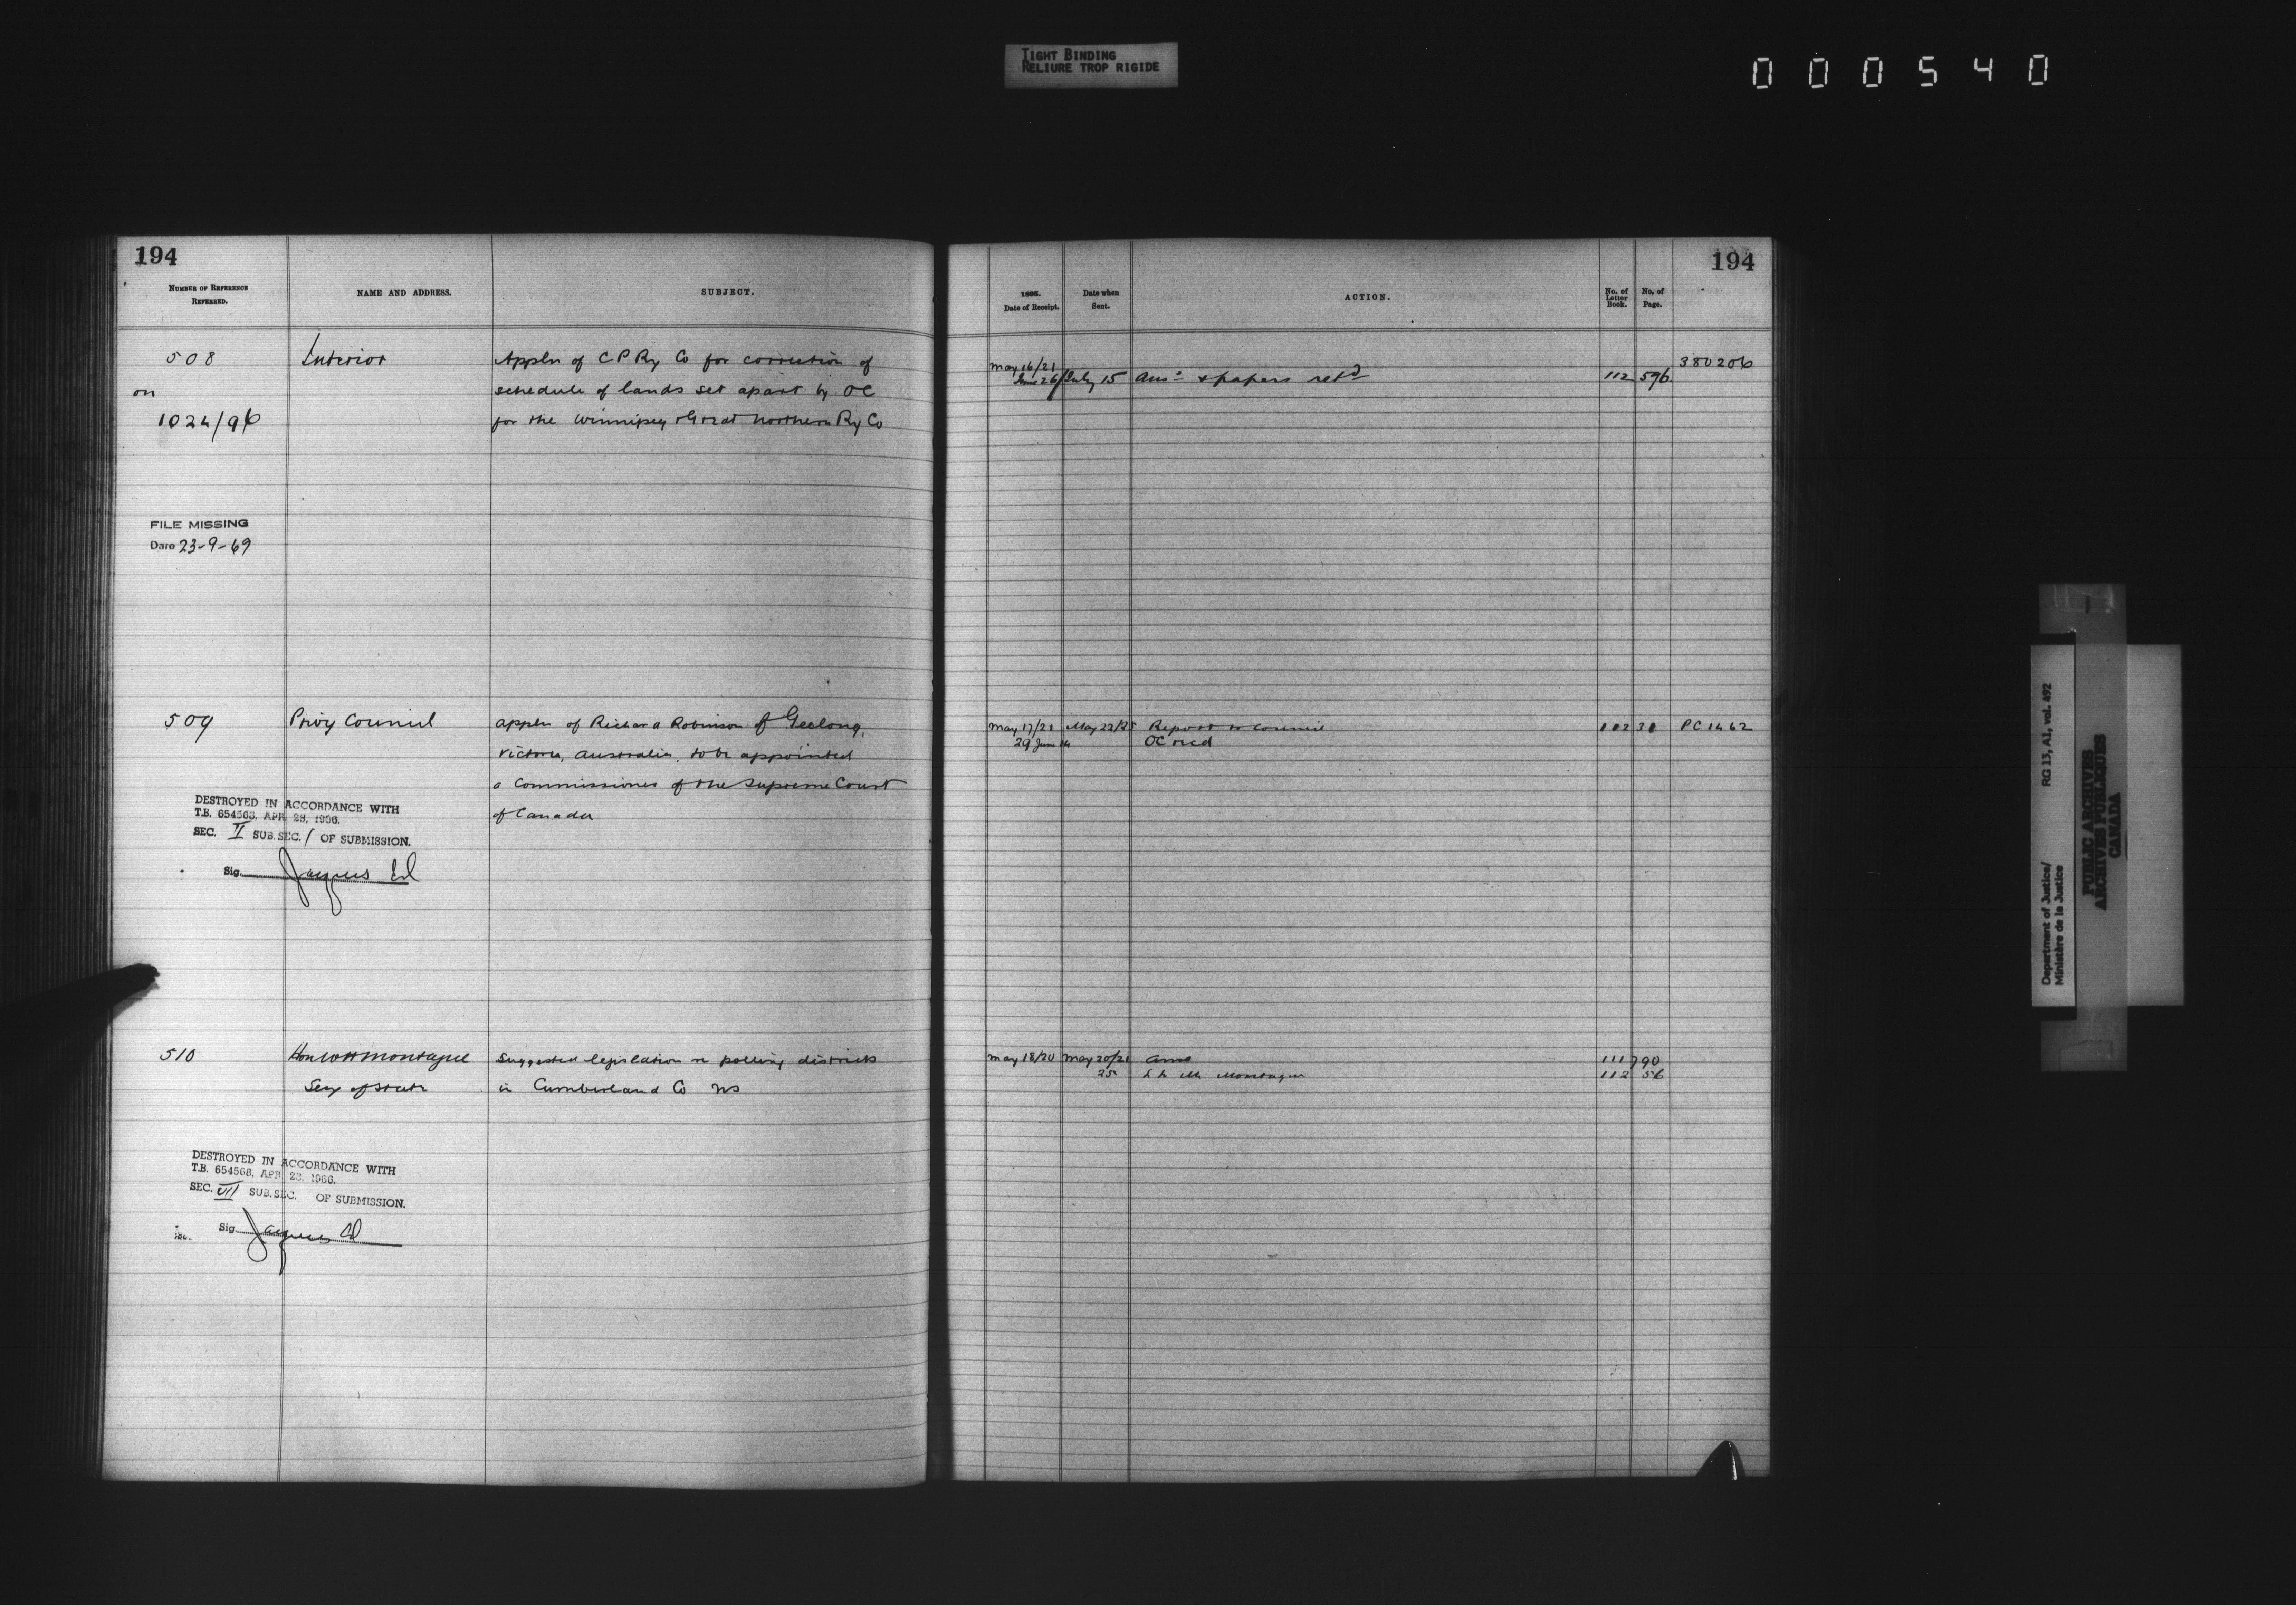 TIGHT BINDING
RELIURE TROP RIGIDE
000540
194
NUMBER OF REFERENCE
REFERRED.
NAME AND ADDRESS.
SUBJECT.
508
Interior
Appln of C P Ry Co for correction of
on
schedule of lands set apart by OC
1024/96
for the Winnipeg & Great Northern Ry Co
FILE MISSING
Date 23-9-69
509
Privy Council
Appln of Richard Robinson of Geelong,
Victoria, Australia, to be appointed
a Commissioner of the Supreme Court
of Canada
DESTROYED IN ACCORDANCE WITH
T.B. 654566, APR 28, 1966.
SEC. II SUB.SEC. / OF SUBMISSION.
Sig.
510
Hon W H Montague
Suggested legislation re polling districts
Secy of State
in Cumberland Co NS
DESTROYED IN ACCORDANCE WITH
T.B. 654566, APR 28, 1966.
SEC. VII SUB.SEC. OF SUBMISSION.
Sig.
194
Date of Receipt.
Date when
Sent.
ACTION.
No. of
Letter
Book.
No. of
Page.
May 16/21
380206
June 26/July 15 Ansd & papers retd 112 596
May 17/21 May 22/25 Report to Council 102 31 PC 1462
29 June 14 OC recd
May 18/20 May 20/21 Ansd 111 790
25 Mr Montague 112 56
Department of Justice/
Ministère de la Justice
RG 13, A1, vol. 492
PUBLIC ARCHIVES
ARCHIVES PUBLIQUES
CANADA